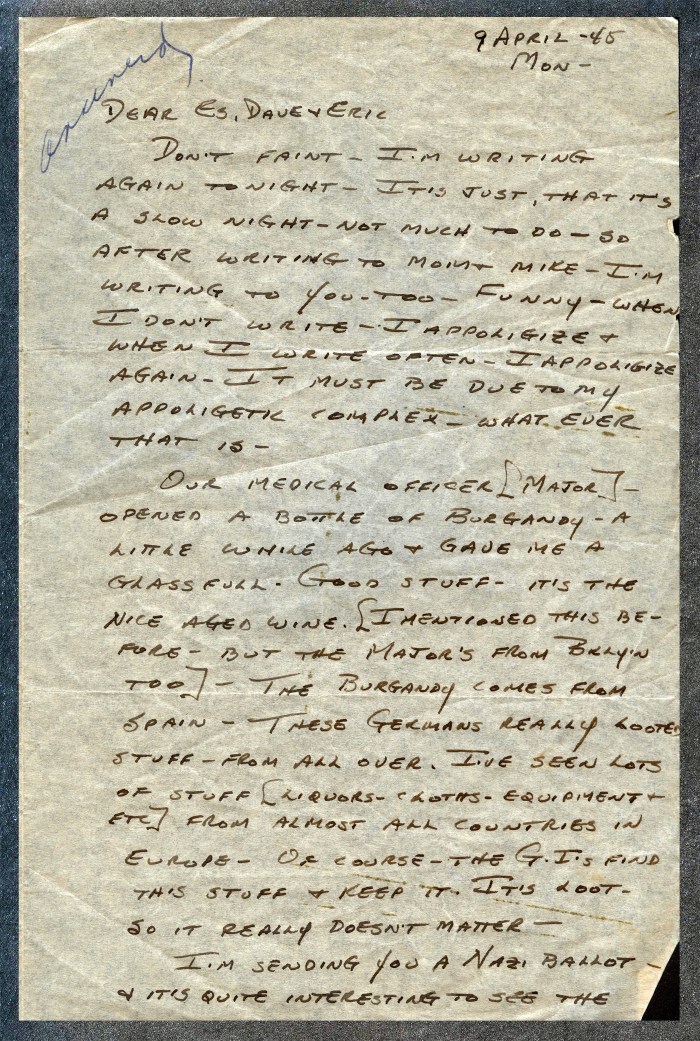 9 APRIL -45
MON-
Answered
DEAR ES, DAVE & ERIC
DON'T FAINT - I'M WRITING
AGAIN TONIGHT - IT'S JUST, THAT IT'S
A SLOW NIGHT - NOT MUCH TO DO - SO
AFTER WRITING TO MOM & MIKE - I'M
WRITING TO YOU - TOO - FUNNY - WHEN
I DON'T WRITE - I APPOLIGIZE &
WHEN I WRITE OFTEN - I APPOLIGIZE
AGAIN - IT MUST BE DUE TO MY
APPOLIGETIC COMPLEX - WHAT EVER
THAT IS -
OUR MEDICAL OFFICER [MAJOR] -
OPENED A BOTTLE OF BURGANDY - A
LITTLE WHILE AGO & GAVE ME A
GLASS FULL - GOOD STUFF - IT'S THE
NICE AGED WINE. [I MENTIONED THIS BE-
FORE - BUT THE MAJOR'S FROM BKLY'N
TOO] - THE BURGANDY COMES FROM
SPAIN - THESE GERMANS REALLY LOOTED
STUFF - FROM ALL OVER. I'VE SEEN LOTS
OF STUFF [LIQUORS - CLOTHS - EQUIPMENT &
ETC] FROM ALMOST ALL COUNTRIES IN
EUROPE - OF COURSE - THE G.I.'S FIND
THIS STUFF & KEEP IT. IT'S LOOT -
SO IT REALLY DOESN'T MATTER -
I'M SENDING YOU A NAZI BALLOT -
& IT'S QUITE INTERESTING TO SEE THE